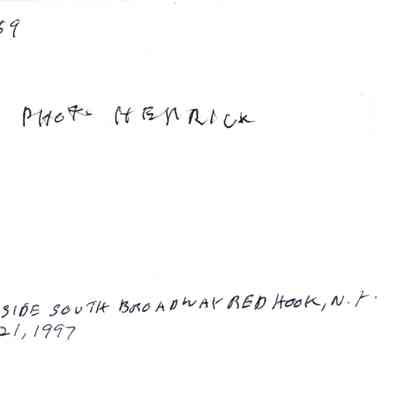 59
PHOTO HERRICK
SIDE SOUTH BROADWAY RED HOOK, N.Y.
21, 1997